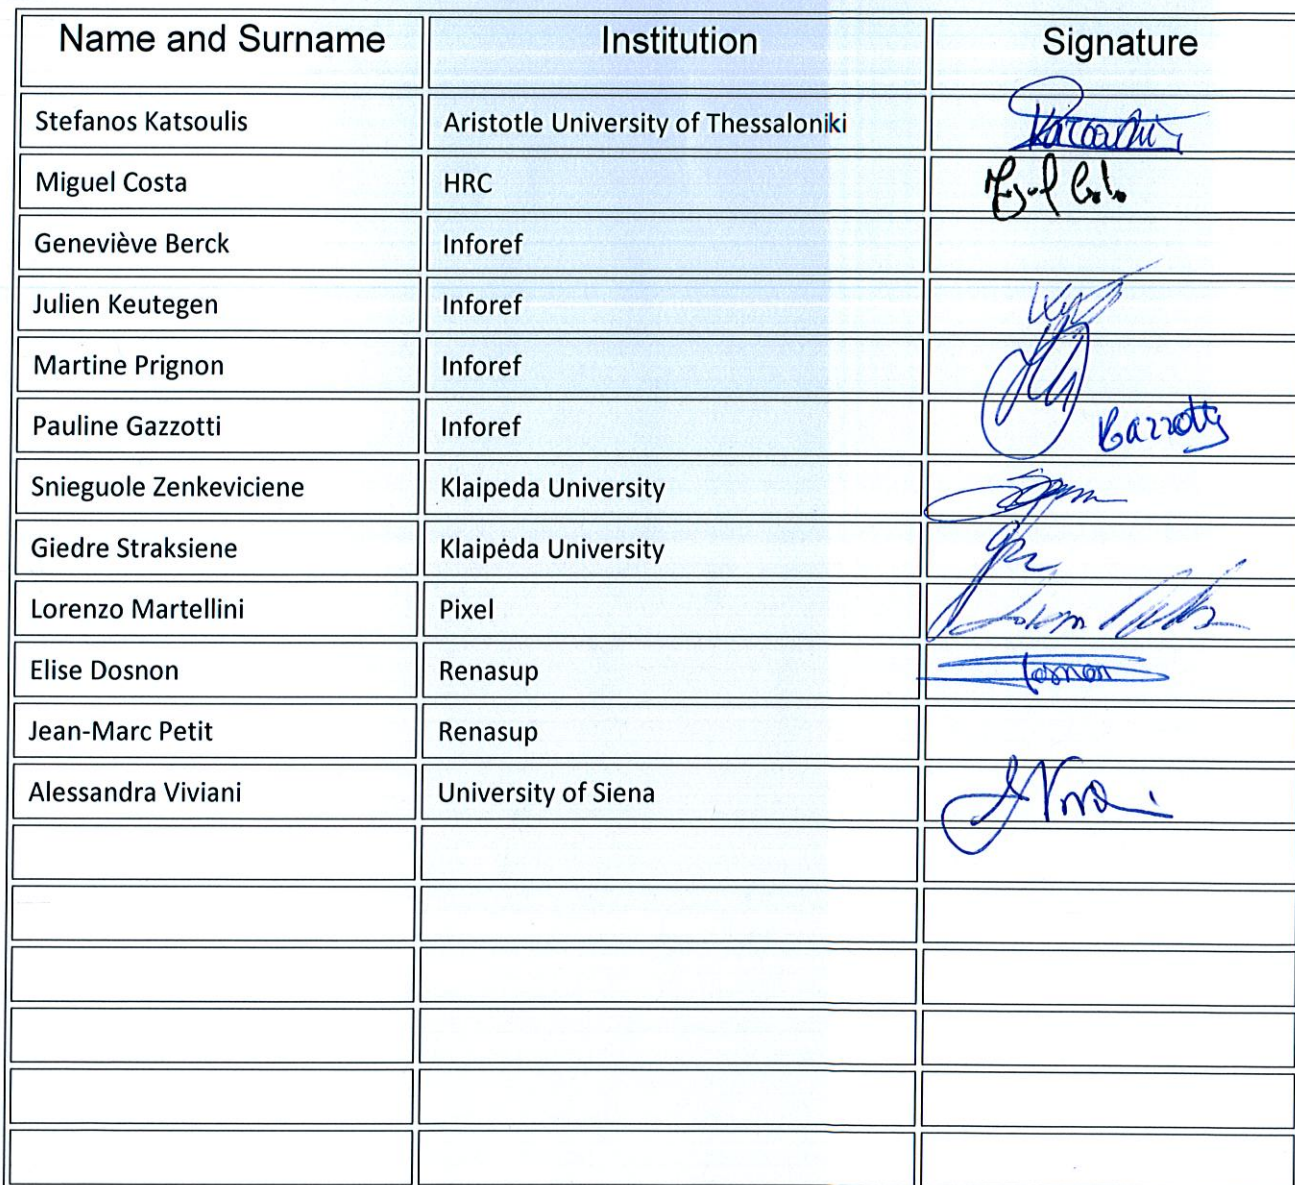 Name and Surname Institution Signature
Stefanos Katsoulis Aristotle University of Thessaloniki
Miguel Costa HRC Miguel Costa
Geneviève Berck Inforef
Julien Keutegen Inforef
Martine Prignon Inforef
Pauline Gazzotti Inforef Gazzotti
Snieguole Zenkeviciene Klaipeda University
Giedre Straksiene Klaipėda University
Lorenzo Martellini Pixel
Elise Dosnon Renasup Dosnon
Jean-Marc Petit Renasup
Alessandra Viviani University of Siena